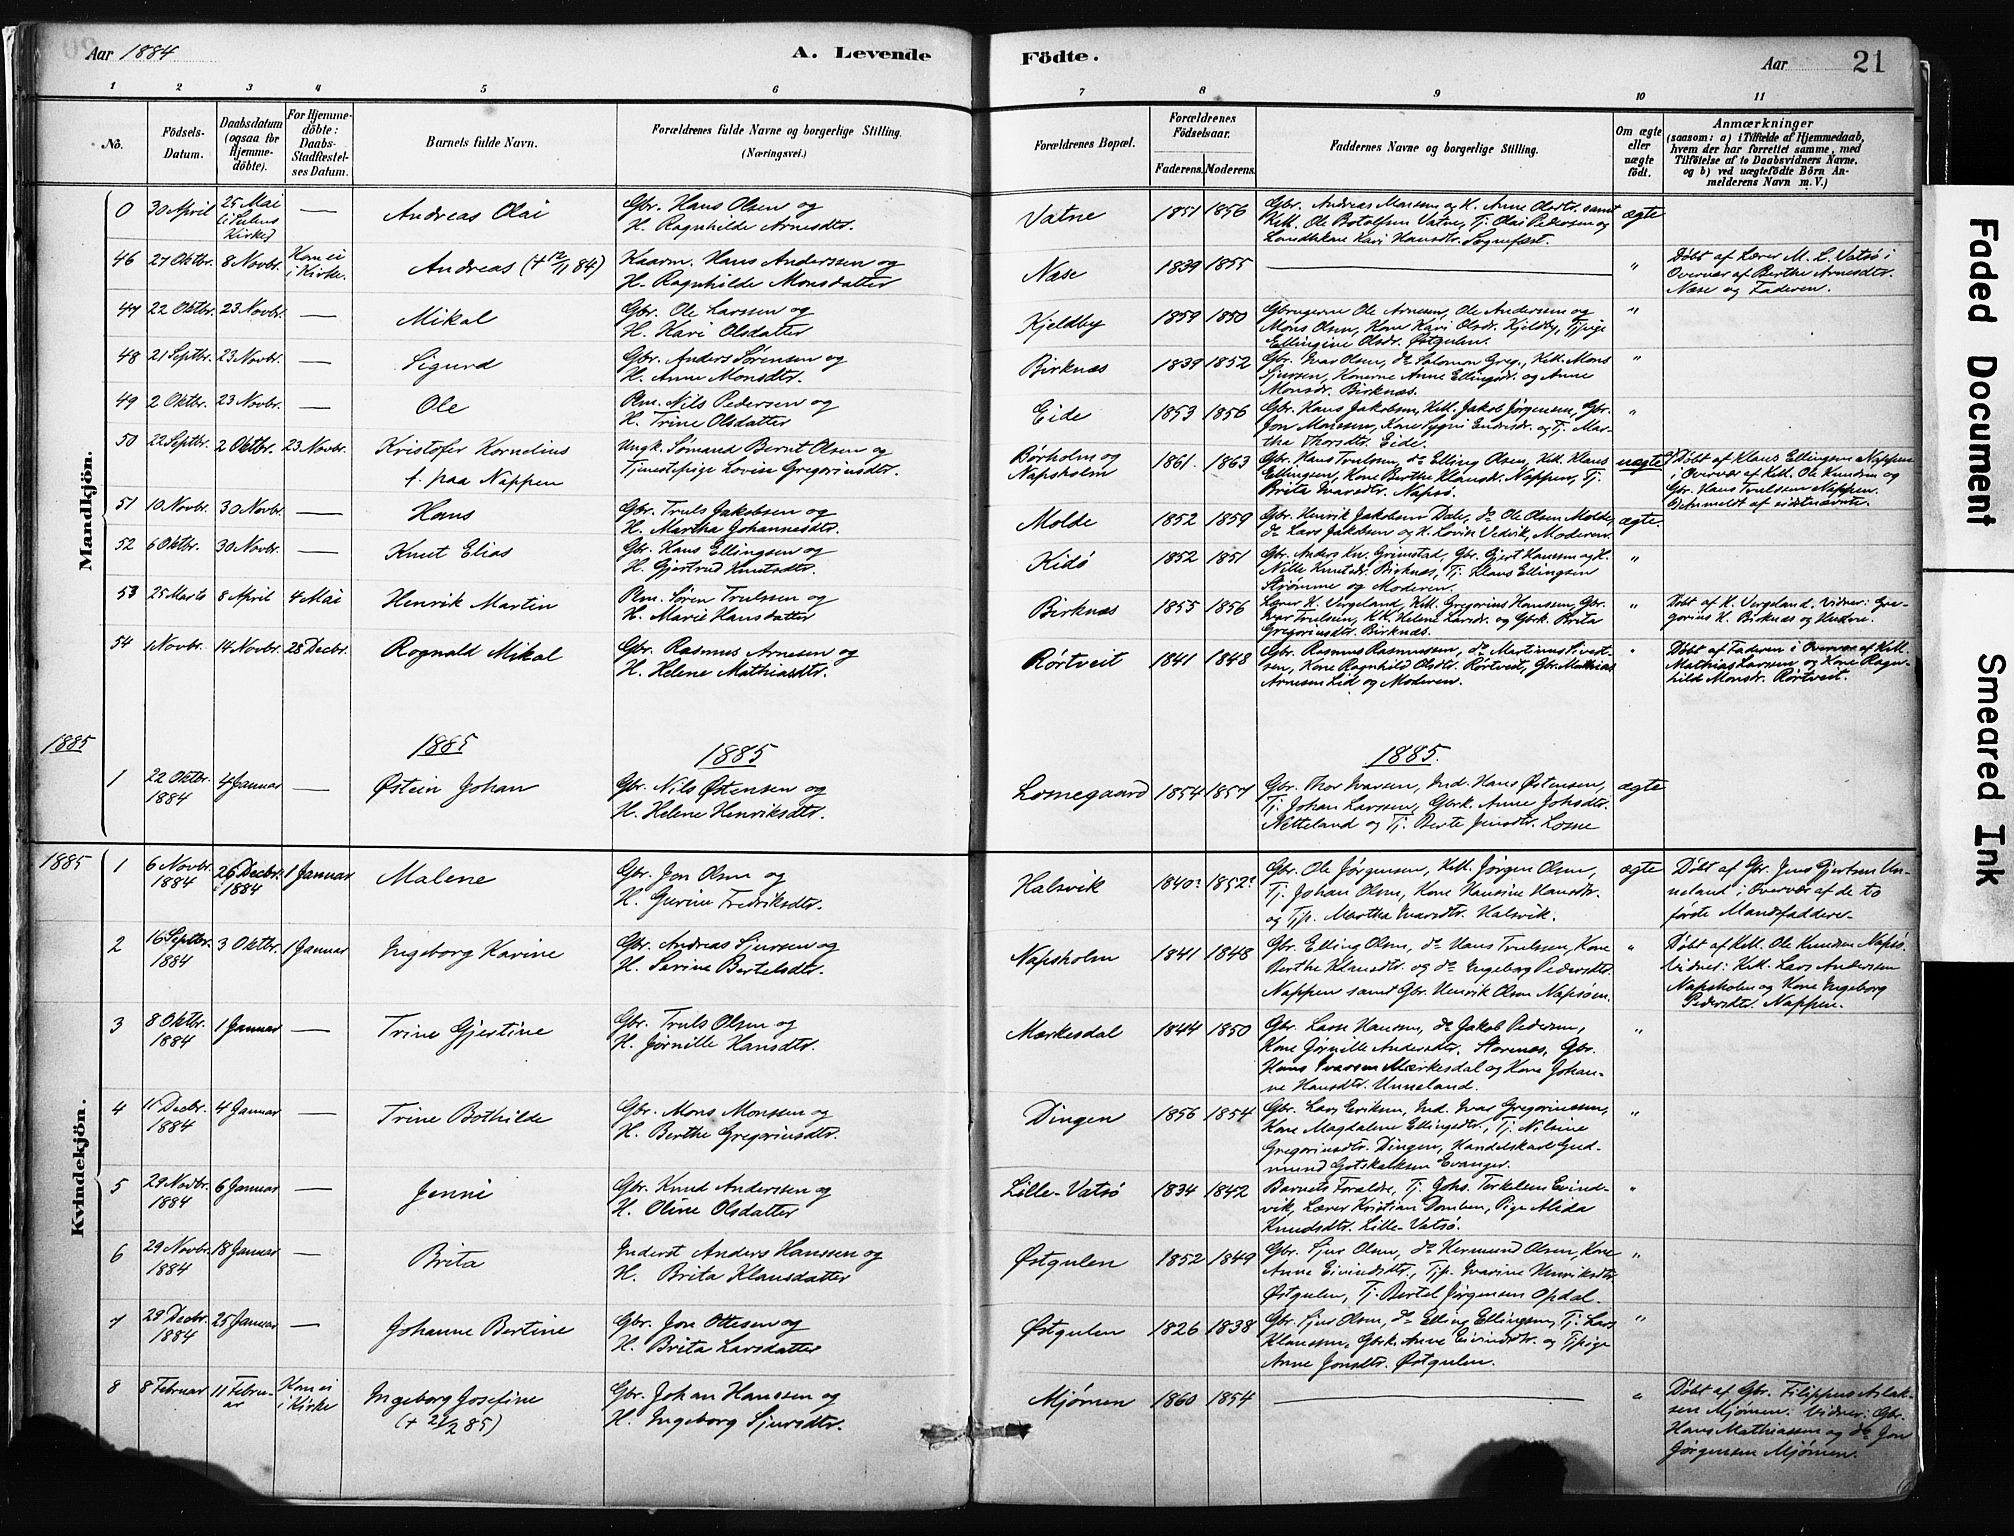 Aar 1884
A. Levende
Födte.
Aar
21
1 2 3 4 5 6 7 8 9 10 11
No.
Födsels-Datum.
Daabsdatum (ogsaa for Hjemme-döbte).
For Hjemme-döbte: Daabs-Stadfæstel-ses Datum.
Barnets fulde Navn.
Forældrenes fulde Navne og borgerlige Stilling.
(Næringsvei.)
Forældrenes Bopæl.
Forældrenes Födselsaar.
Faderens. Moderens.
Faddernes Navne og borgerlige Stilling.
Om ægte eller uægte födt.
Anmærkninger
(saasom: a) i Tilfælde af Hjemmedaab,
hvem der har forrettet samme, med
Tilföielse af to Daabsvidners Navne.
og b) ved uægtefödte Börn An-
melderens Navn m. V.)
Mandkjön.
0 30 April 25 Mai Kirke) — Andreas Olai Gbr. Hans Olsen og
H. Ragnhilde Arnesdtr. Vatne 1851 1856 Gbr. Andreas Monsen og K. Anne Olsdtr. samt
Kltk. Ole Botolfsen Vatne, Tj. Olai Pedersen og
Landhkone Kari Hansdtr. Sognefæst. ægte
46 27 Oktbr. 8 Novbr. Kom ei i Kirke. Andreas (+ 12/11 84) Kaarm. Hans Anderssen og
H. Ragnhilde Monsdatter Næse 1839 1855 — " Döbt af Lærer M. L. Vatsö i
Overvær af Berthe Arnesdtr.
Næse og Faderen.
47 22 Oktbr. 23 Novbr. — Mikal Gbr. Ole Larssen og
H. Kari Olsdatter Kjeldby 1859 1850 Gbrugerne Ole Arnesen, Ole Andersen og
Mons Olsen, Kone Kari Olsdr. Kjeldby, Tjpige
Ellingine Olsdr. Østgulen. "
48 21 Septbr. 23 Novbr. — Sigurd Gbr. Anders Sørensen og
H. Anne Monsdtr. Birknæs 1839 1852 Gbr. Ivar Olsen, do Salomon Greg., Kltk. Mons
Sjursen, Konerne Anne Ellingsdr. og Anne
Monsdr. Birknæs. "
49 2 Oktbr. 23 Novbr. — Ole Plm. Nils Pedersen og
H. Trine Olsdatter Eide 1853 1856 Gbr. Hans Jakobsen, Kltk. Jakob Jørgensen, Gbr.
Jon Monssen, Kone Sygni Endresdr. og Tj. Mar-
tha Thorsdtr. Eide. "
50 22 Septbr. 2 Oktbr. 23 Novbr. Kristofer Kornelius
f. paa Nappen Ungk. Sømand Bernt Olsen og
Tjenestepige Lovise Gregoriusdtr. Børholm og
Napsholm 1861. 1863 Gbr. Hans Trulssen, do Elling Olsen, Kltk. Klaus
Ellingsen, Kone Berthe Klausdr. Nappen, Tj.
Brita Ivarsdtr. Napsø. uægte a) Döbt af Klaus Ellingsen Nappen
i Overvær af Kltk. Ole Knudsen og
Gbr. Hans Trulssen Nappen.
b) Anmeldt af sidstnævnte.
51 10 Novbr. 30 Novbr. — Hans Gbr. Truls Jakobsen og
H. Martha Johannesdtr. Molde 1852 1859 Gbr. Henrik Jakobsen Dale, do Ole Olsen Molde,
do Lars Jakobsen og K. Lovise Vedvik, Moderen. ægte.
52 6 Oktbr. 30 Novbr. — Knut Elias Gbr. Hans Ellingsen og
H. Gjertrud Knutsdtr. Kidø 1852 1851 Gbr. Anders Kn. Grimstad, Gbr. Gjert Hanssen og K.
Nille Knutsdr. Birknæs, Tj. Klaus Ellingsen
Strømme og Moderen. "
53 25 Marts 8 April 4 Mai Henrik Martin Plm. Søren Trulssen og
H. Marie Hansdatter Birknæs 1855 1856 Lærer K. Vergeland, Kltk. Gregorius Hanssen, Gbr.
Ivar Trulssen, KK. Helene Larsdr. og Gbrk. Brita
Gregoriusdtr. Birknæs. " Döbt af K. Vergeland. Vidner: Gre-
gorius H. Birknæs og Hustru.
54 1 Novbr. 14 Novbr. 28 Decbr. Rognald Mikal Gbr. Rasmus Arnesen og
H. Helene Mathiasdtr. Rørtveit 1841 1848 Gbr. Rasmus Rasmussen, do Martinus Sivert-
sen, Kone Ragnhild Olsdr. Rørtveit, Gbr. Mathias
Arnesen Lid og Moderen. " Döbt af Faderen i Overvær af Kltk.
Mathias Larssen og Kone Ragn-
hilde Monsdr. Rørtveit.
1885 1885 1885 1885.
1 22 Oktbr. 1884 4 Januar — Østein Johan Gbr. Nils Østensen og
H. Helene Henriksdtr. Losnegaard 1854 1857 Gbr. Thor Ivarsen, Ind. Hans Østensen,
Tj. Johan Larssen, Gbrk. Anne Johsdtr.
Netteland og Tj. Berte Jensdtr. Losne ægte
Kvindekjön.
1885
1 6 Novbr. 1884 26 Decbr. 1884 1 Januar Malene Gbr. Jon Olsen og
H. Gurine Fredriksdtr. Halsvik 1840? 1852? Gbr. Ole Jørgensen, Kltk. Jørgen Olsen,
Tj. Johan Olsen, Kone Hansine Hansdtr.
og Tjp. Martha Ivarsdtr. Halsvik. ægte Döbt af Gbr. Jens Gjertsen Un-
neland i Overvær af de to
første Mandsfaddere.
2 16 Septbr. 1884 3 Oktbr. 1 Januar Ingeborg Karine Gbr. Andreas Sjursen og
H. Sarine Bertelsdtr. Napsholm 1841 1848 Gbr. Elling Olsen, do Hans Trulssen, Kone
Berthe Klausdtr. og do Ingeborg Pedersdtr.
Nappen samt Gbr. Henrik Olsen Napsøen. " Döbt af Kltk. Ole Knudsen Napsø.
Vidner: Kltk. Lars Anderssen
Napsholm og Kone Ingeborg
Pedersdtr. Nappen.
3 8 Oktbr. 1884 1 Januar — Trine Gjestine Gbr. Truls Olsen og
H. Jørnille Hansdtr. Mærkesdal 1844 1850 Gbr. Lasse Hanssen, do Jakob Pedersen,
Kone Jørnille Andersdtr. Storenæs, Gbr.
Hans Ivarsen Mærkesdal og Kone Johan-
ne Hansdtr. Unneland. "
4 11 Decbr. 1884 4 Januar — Trine Bothilde Gbr. Mons Monssen og
H. Berthe Gregoriusdtr. Dingen 1856 1854 Gbr. Lars Eriksen, Ind. Ivar Gregoriussen,
Kone Magdalene Ellingsdtr., Tj. Nilsine
Gregoriusdtr. Dingen, Handelskarl Gud-
mund Gotskalksen Evanger. "
5 29 Novbr. 1884 6 Januar — Jenni Gbr. Knud Anderssen og
H. Oline Olsdatter Lille-Vatsö 1834 1842 Barnets Forældre, Tj. Johs. Terkelsen Evind-
vik, Lærer Kristian Domben, Pige Alida
Knudsdtr. Lille-Vatsø. "
6 29 Novbr. 1884 18 Januar — Brita Inderst Anders Hanssen og
H. Brita Klausdatter Østgulen 1852 1849 Gbr. Sjur Olsen, do Hermund Olsen, Kone
Anne Eivindsdtr., Tjp. Ivarine Henriksdtr.
Østgulen, Tj. Bertel Jørgensen Opdal. "
7 29 Decbr. 1884 25 Januar — Johanne Bertine Gbr. Jon Ottesen og
H. Brita Larsdatter Østgulen 1826 1838 Gbr. Sjur Olsen, do Elling Ellingsen, Tj. Lars
Klaussen, Gbrk. Anne Eivindsdtr. og Tjpige
Anne Jonsdtr. Østgulen. "
8 8 Februar 11 Febru-ar Kom ei i Kirke Ingeborg Josefine
(+ 21/2 85) Gbr. Johan Hanssen og
H. Ingeborg Sjursdtr. Mjømen 1860 1854 — " Döbt af Gbr. Filippus Aslak-
sen Mjømen. Vidner: Gbr.
Hans Mathiassen og do Jon
Jørgensen Mjømen.
Faded Document
Smeared Ink